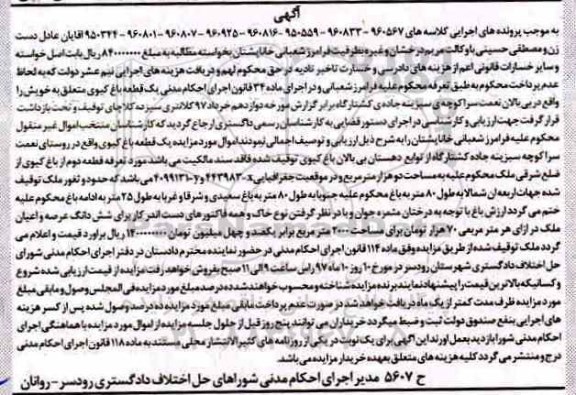 آگهی
به موجب پرونده های اجرایی کلاسه های ۹۶۰۵۶۷ - ۹۶۰۸۳۳ - ۹۵۰۵۵۹ - ۹۶۰۸۱۶ - ۹۶۰۹۲۵ - ۹۶۰۸۰۷ - ۹۶۰۸۰۱ - ۹۵۰۳۴۴ آقایان عادل دست
زن و مصطفی حسینی با وکالت مریم درخشان و غیره بطرفیت فرامرز شعبانی خاناپشتان بخواسته مطالبه به مبلغ ۸۴۰۰۰۰۰۰۰ ریال بابت اصل خواسته
و سایر خسارات قانونی اعم از هزینه های دادرسی و خسارت تاخیر تادیه در حق محکوم لهم و دریافت هزینه های اجرایی نیم عشر دولت که به لحاظ
عدم پرداخت محکوم به طبق تعرفه محکوم علیه فرامرز شعبانی و در اجرای ماده ۳۴ قانون اجرای احکام مدنی یک قطعه باغ کیوی متعلق به خویش را
واقع در بی بالان نعمت سرا کوچه ی سبزینه جاده ی کشتارگاه برابر گزارش مورخه دوازدهم خرداد ۹۷ کلانتری سیزده کلاچای توقیف و تحت بازداشت
قرار گرفت جهت ارزیابی و کارشناسی در اجرای دستور قضایی به کارشناسان رسمی دادگستری ارجاع گردید که کارشناسان منتخب اموال غیر منقول
محکوم علیه فرامرز شعبانی خاناپشتان را به شرح ذیل ارزیابی و توصیف اجمالی نمودند اموال مورد مزایده یک قطعه باغ کیوی واقع در روستای نعمت
سرا کوچه سبزینه جاده کشتارگاه از توابع دهستان بی بالان باغ کیوی توقیف شده فاقد سند مالکیت می باشد مورد تعرفه قطعه دوم از باغ کیوی از
ضلع شرقی ملک محکوم علیه به مساحت دو هزار متر مربع و در موقعیت جغرافیایی ۴۴۳۹۸۳-x و ۴۰۹۹۱۳۱-y می باشد که حدود و ثغور ملک توقیف
شده جهات اربعه آن شمالا به طول ۸۰ متر به باغ محکوم علیه جنوبا به طول ۸۰ متر به باغ سعیدی و شرقا و غربا به طول ۲۵ متر به ادامه باغ محکوم علیه
ختم می گردد ارزش باغ با توجه به درختان مثمره جوان و با در نظر گرفتن نوع خاک و همه فاکتورهای دست اندر کار برای شش دانگ عرصه و اعیان
ملک در ازای هر متر مربعی ۷۰ هزار تومان برای مساحت ۲۰۰۰ متر مربع برابر یکصد و چهل میلیون تومان ۱۴۰۰۰۰۰۰۰۰ ریال برآورد قیمت و اعلام می
گردد ملک توقیف شده از طریق مزایده وفق ماده ۱۱۴ قانون اجرای احکام مدنی در حضور نماینده محترم دادستان در دفتر اجرای احکام مدنی شورای
حل اختلاف دادگستری شهرستان رودسر در مورخ ۱۰ روز ۱۰ ماه ۹۷ راس ساعت ۹ الی ۱۱ صبح بفروش خواهد رفت مزایده از قیمت ارزیابی شده شروع
و کسانیکه بالاترین قیمت را پیشنهاد نمایند برنده مزایده شناخته و محسوب خواهند شد ده درصد مبلغ مورد مزایده فی المجلس وصول و مابقی مبلغ
مورد مزایده ظرف مدت کمتر از یک ماه دریافت خواهد شد در صورت عدم پرداخت مابقی مبلغ مورد مزایده ده درصد وصول شده پس از کسر هزینه
های اجرایی بنفع صندوق دولت ثبت و ضبط میگردد خریداران می توانند پنج روز قبل از حلول جلسه مزایده از اموال مورد مزایده با هماهنگی اجرای
احکام مدنی شورا بازدید بعمل آورند این آگهی برای یک نوبت در یکی از روزنامه های کثیر الانتشار محلی مستند به ماده ۱۱۸ قانون اجرای احکام مدنی
درج و منتشر می گردد کلیه هزینه های متعلق بعهده خریدار مزایده می باشد.
ح ۵۶۰۷ مدیر اجرای احکام مدنی شوراهای حل اختلاف دادگستری رودسر - روانان